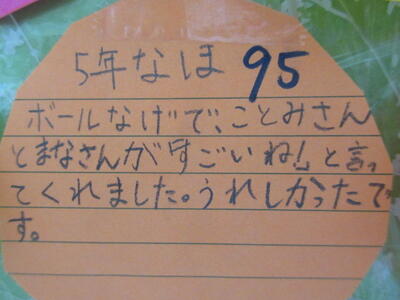 5年なほ 95
ボールなげで、ことみさん
とまなさんが「すごいね!」と言っ
てくれました。うれしかったで
す。